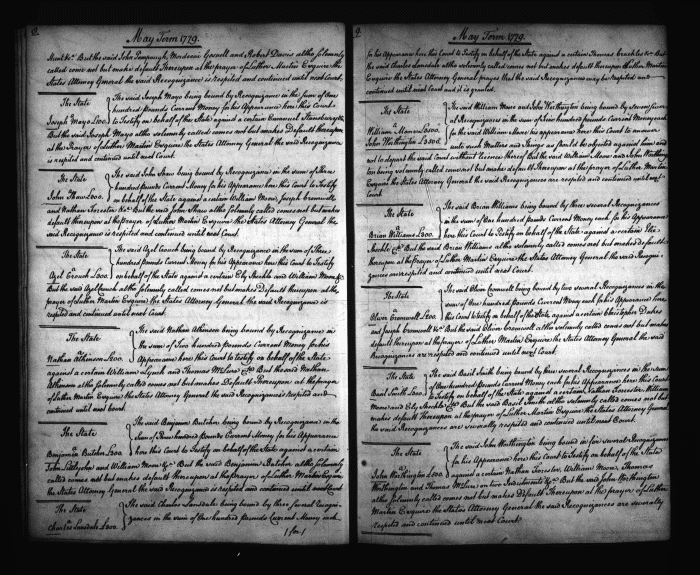 May Term 1779.
Hunt &c. But the said John Pumpaugh, Mordecai Gosnell and Robert Davis altho solemnly
called come not but make default thereupon at the prayer of Luther Martin Esquire the
States Attorney General the said Recognizance is respited and continued until next Court.
The State
Joseph Mayo £100.
The said Joseph Mayo being bound by Recognizance in the sum of One
hundred pounds Current Money for his Appearance here this Court
to Testify on behalf of the State against a certain Emanuel
But the said Joseph Mayo altho solemnly called comes not but makes Default thereupon
at the Prayer of Luther Martin Esquire the States Attorney General the said Recognizance
is respited and continued until next Court.
The State
John Shaw £300.
The said John Shaw being bound by Recognizance in the sum of Three
hundred pounds Current Money for his Appearance here this Court to Testify
on behalf of the State against a certain William Moore, Joseph Cromwell
and Nathan Forrester &c. But the said John Shaw altho solemnly called comes not but makes
default thereupon at the prayer of Luther Martin Esquire the States Attorney General the
said Recognizance is respited and continued until next Court.
The State
Azel Crouch £300.
The said Azel Crouch being bound by Recognizance in the sum of Three
hundred pounds Current Money for his Appearance here this Court to Testify
on behalf of the State against a certain Ely and William Moore &c.
But the said Azel Crouch altho solemnly called comes not but makes Default thereupon at the
prayer of Luther Martin Esquire the States Attorney General the said Recognizance is
respited and continued until next Court.
The State
Nathan Atkinson £200.
The said Nathan Atkinson being bound by Recognizance in the
sum of Two hundred pounds Current Money for his
Appearance here this Court to Testify on behalf of the State
against a certain William Lynch and Thomas McLure &c. But the said Nathan
Atkinson altho solemnly called comes not but makes Default Thereupon at the prayer
of Luther Martin Esquire the States Attorney General the said Recognizance is respited and
continued until next Court.
The State
Benjamin Butcher £300.
The said Benjamin Butcher being bound by Recognizance in the
sum of Three hundred pounds Current Money for his Appearance
here this Court to Testify on behalf of the State against a certain
John Littlejohn and William Moore &c. But the said Benjamin Butcher altho solemnly
called comes not but makes default thereupon at the prayer of Luther Martin Esquire
the States Attorney General the said Recognizance is respited and continued until next Court.
The State
Charles Lansdale £100.
The said Charles Lansdale being bound by three several Recogni-
zances in the sum of One hundred pounds Current Money each
for
May Term 1779.
for his Appearance here this Court to Testify on behalf of the State against a certain Thomas &c. But
the said Charles Lansdale altho solemnly called comes not but makes default thereupon Luther Martin
Esquire the States Attorney General prayes that the said Recognizances may be respited and
continued until next Court and it is granted.
The State
William Moore £500.
John Worthington £500.
The said William Moore and John Worthington being bound by several
Recognizances in the sum of five hundred pounds Current Money each
for the said William Moore his appearance here this Court to answer
unto such Matters and things as shall be objected against him and
not to depart the said Court without Licence thereof But the said William Moore and John Worthing-
ton being solemnly called comes not but makes default Thereupon at the prayer of Luther Martin
Esquire the States Attorney General the said Recognizances are respited and continued until next
Court.
The State
Brian Williams £100.
The said Brian Williams being bound by three several Recognizances
in the sum of One hundred pounds Current Money each for his Appearance
here this Court to Testify on behalf of the State against a certain
&c. But the said Brian Williams altho solemnly called comes not but makes default
thereupon at the prayer of Luther Martin Esquire the States Attorney General the said Recogni-
zances are respited and continued until next Court.
The State
Oliver Cromwell £100
The said Oliver Cromwell being bound by two several Recognizances in the
sum of One hundred pounds Current Money each for his Appearance here
this Court to testify on behalf of the State against a certain Christopher Dukes
and Joseph Cromwell &c. But the said Oliver Cromwell altho solemnly called comes not but makes
default thereupon at the prayer of Luther Martin Esquire the States Attorney General the said
Recognizances are respited and continued until next Court.
The State
Basil Smith £100.
The said Basil Smith being bound by three several Recognizances in the sum
of One hundred pounds Current Money each for his Appearance here this Court
to Testify on behalf of the State against a certain Nathan Forrester William
Moore and Ely &c. But the said Basil Smith altho solemnly called comes not but
makes default thereupon at the prayer of Luther Martin Esquire the States Attorney General
the said Recognizances are severally respited and continued until next Court.
The State
John Worthington £100
The said John Worthington being bound in five several Recognizances
for his Appearance here this Court to Testify on behalf of the State
against a certain Nathan Forrester, William Moore, Thomas
Worthington and Thomas McLure on two Indictments &c. But the said John Worthington
altho solemnly called comes not but makes Default thereupon at the prayer of Luther
Martin Esquire the States Attorney General the said Recognizances are severally
respited and continued until next Court.